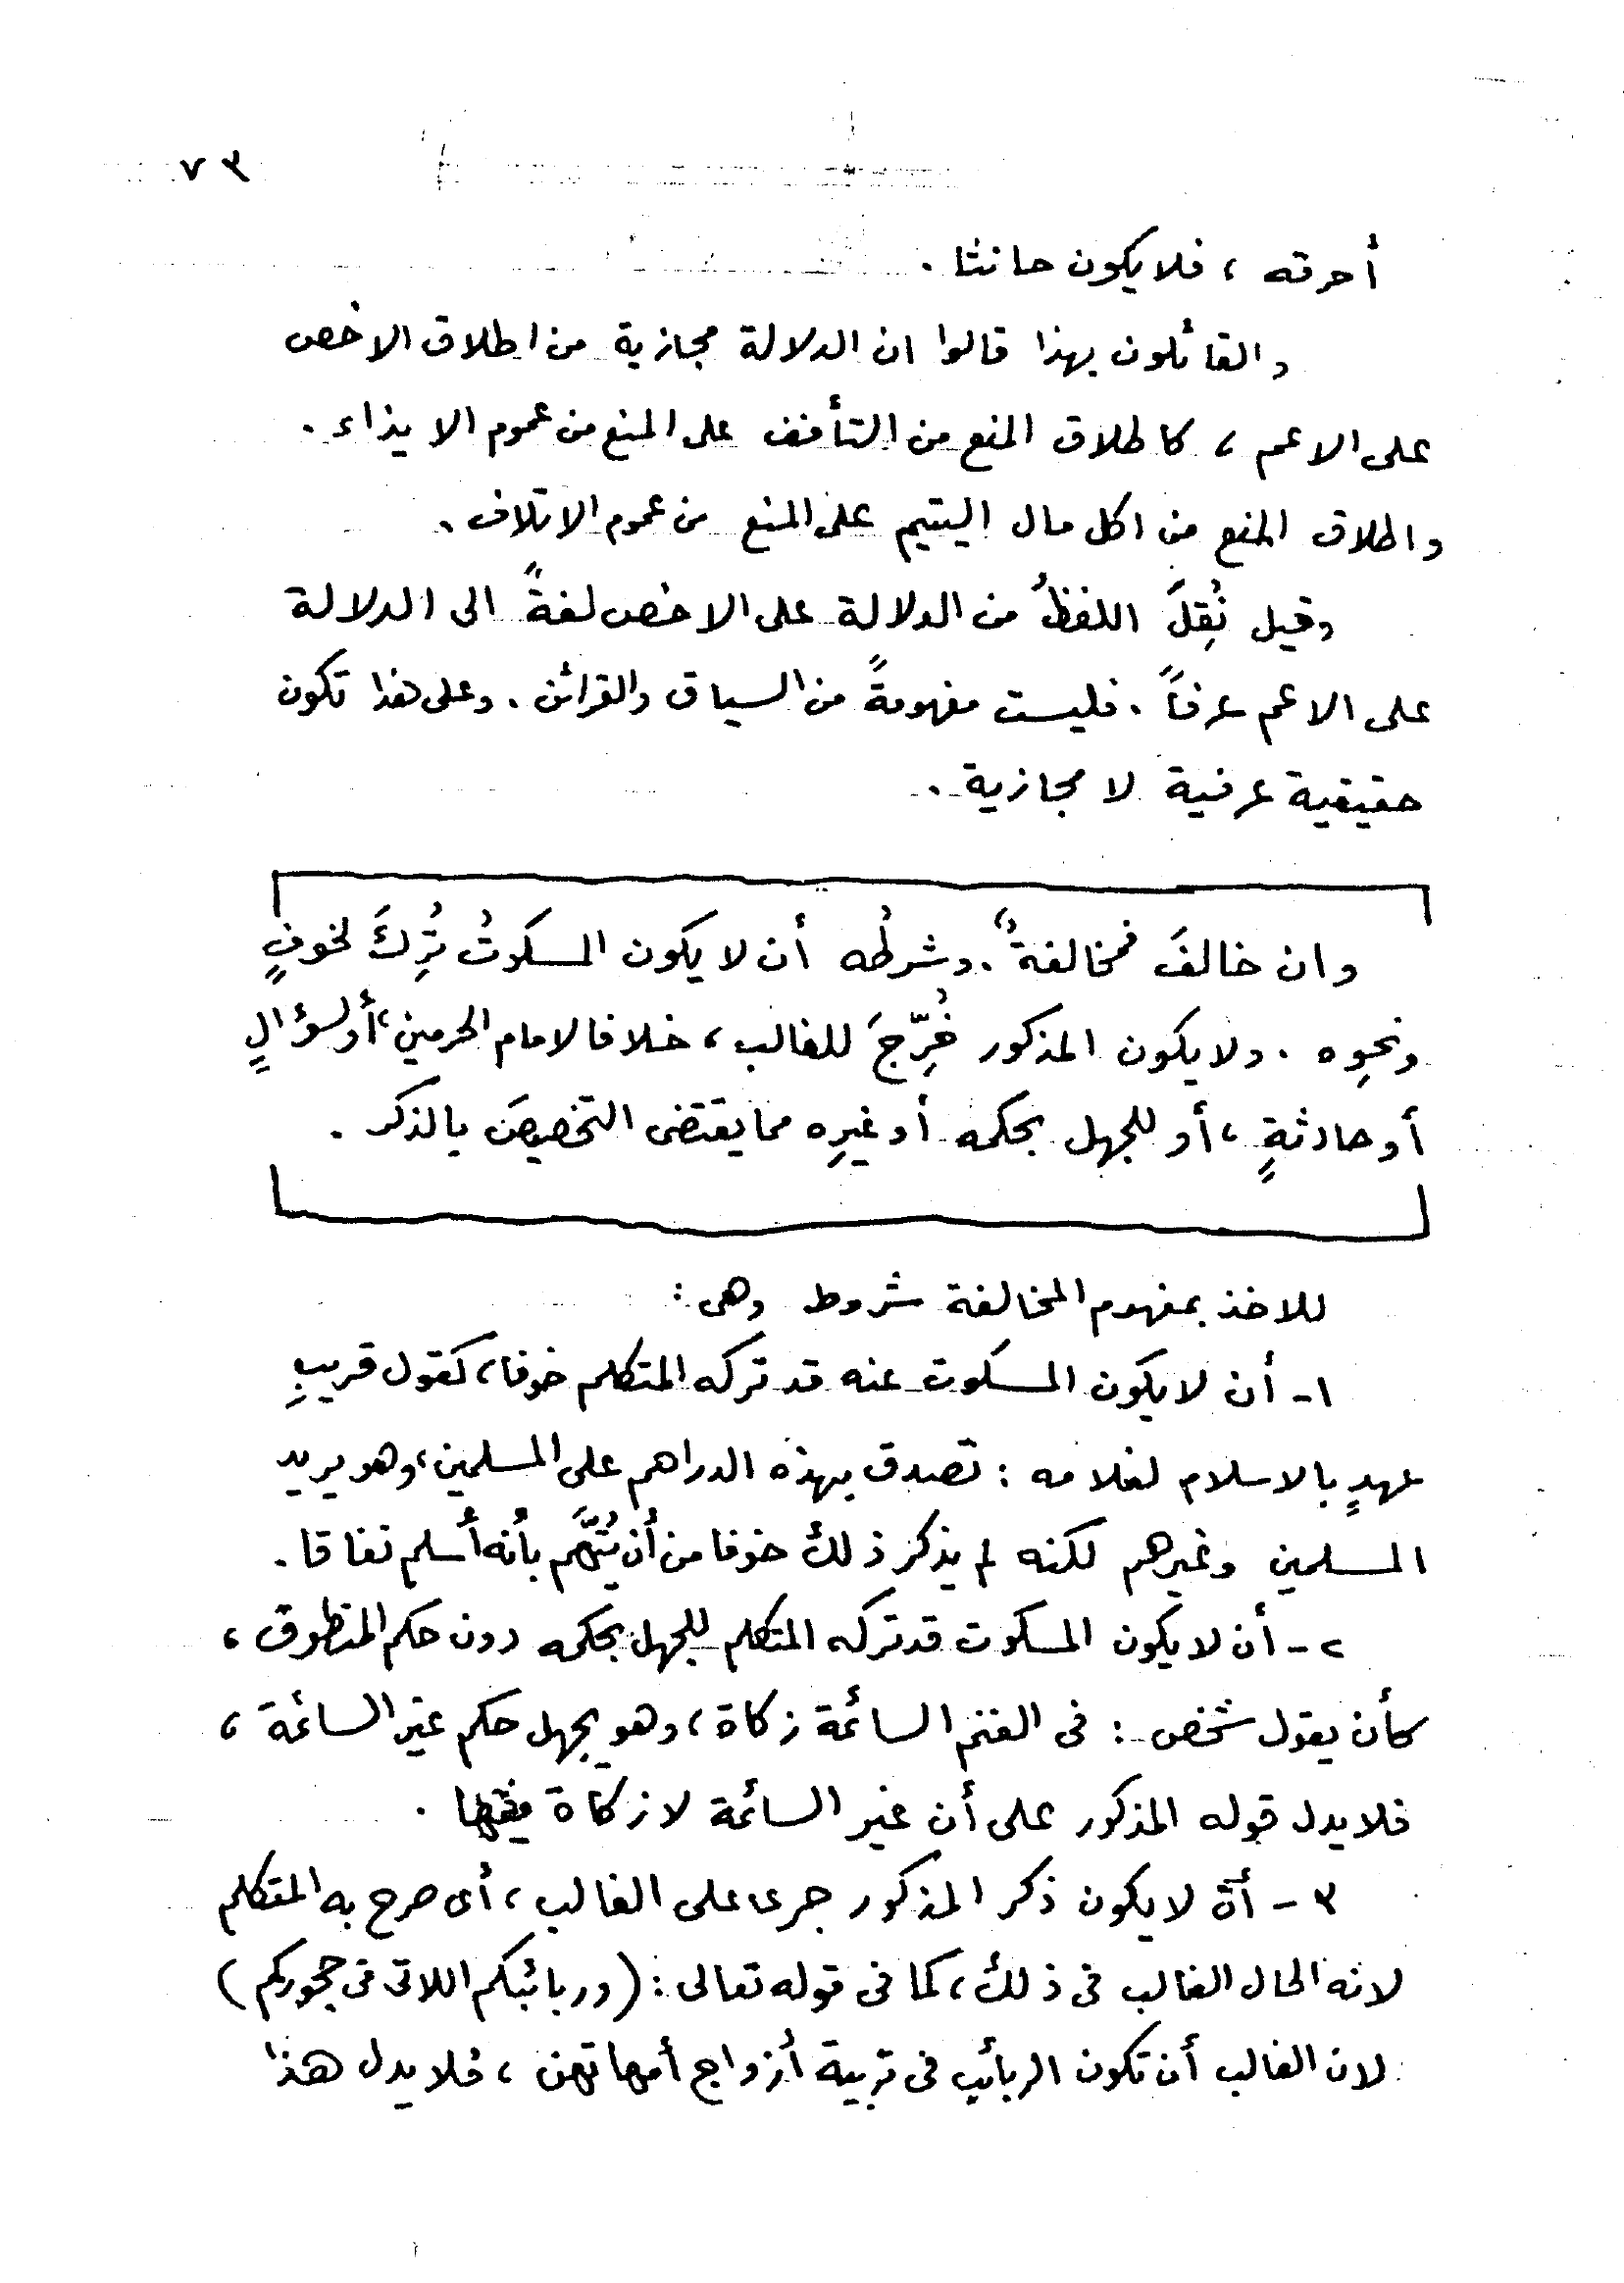 ٧٣
أحرقه ، فلا يكون حانثا .
والقائلون بهذا قالوا ان الدلالة مجازية من اطلاق الاخص
على الاعم ، كاطلاق المنع من التأفف على المنع من عموم الايذاء .
واطلاق المنع من اكل مال اليتيم على المنع من عموم الاتلاف .
وقيل نُقِلَ اللفظُ من الدلالة على الاخص لغةً الى الدلالة
على الاعم عرفاً . فليست مفهومةً من السياق والقرائن . وعلى هذا تكون
حقيقية عرفية لا مجازية .
وان خالفَ فمخالفةٌ . وشرطُه أن لا يكون المسكوتُ تُرِكَ لخوفٍ
ونحوِه . ولا يكون المذكور خُرِّجَ للغالب ، خلافا لامام الحرمين ، أو لسؤالٍ
أو حادثةٍ ، أو للجهل بحكمه أو غيرِه مما يقتضى التخصيصَ بالذكر .
للاخذ بمفهوم المخالفة شروط وهى :
١- أن لا يكون المسكوت عنه قد تركه المتكلم خوفا ، كقول قريبِ
عهدٍ بالاسلام لغلامه : تصدق بهذه الدراهم على المسلمين ، وهو يريد
المسلمين وغيرهم لكنه لم يذكر ذلك خوفا من أن يُتَّهَم بأنه أسلم نفاقا .
٢- أن لا يكون المسكوت قد تركه المتكلم للجهل بحكمه دون حكم المنطوق ،
كأن يقول شخص : فى الغنم السائمة زكاة ، وهو يجهل حكم غير السائمة ،
فلا يدل قوله المذكور على أن غير السائمة لا زكاة فيها .
٣- أن لا يكون ذكر المذكور جرى على الغالب ، أى صرح به المتكلم
لانه الحال الغالب فى ذلك ، كما فى قوله تعالى : (وربائبكم اللاتى فى حجوركم)
لان الغالب أن تكون الربائب فى تربية أزواج أمهاتهن ، فلا يدل هذا